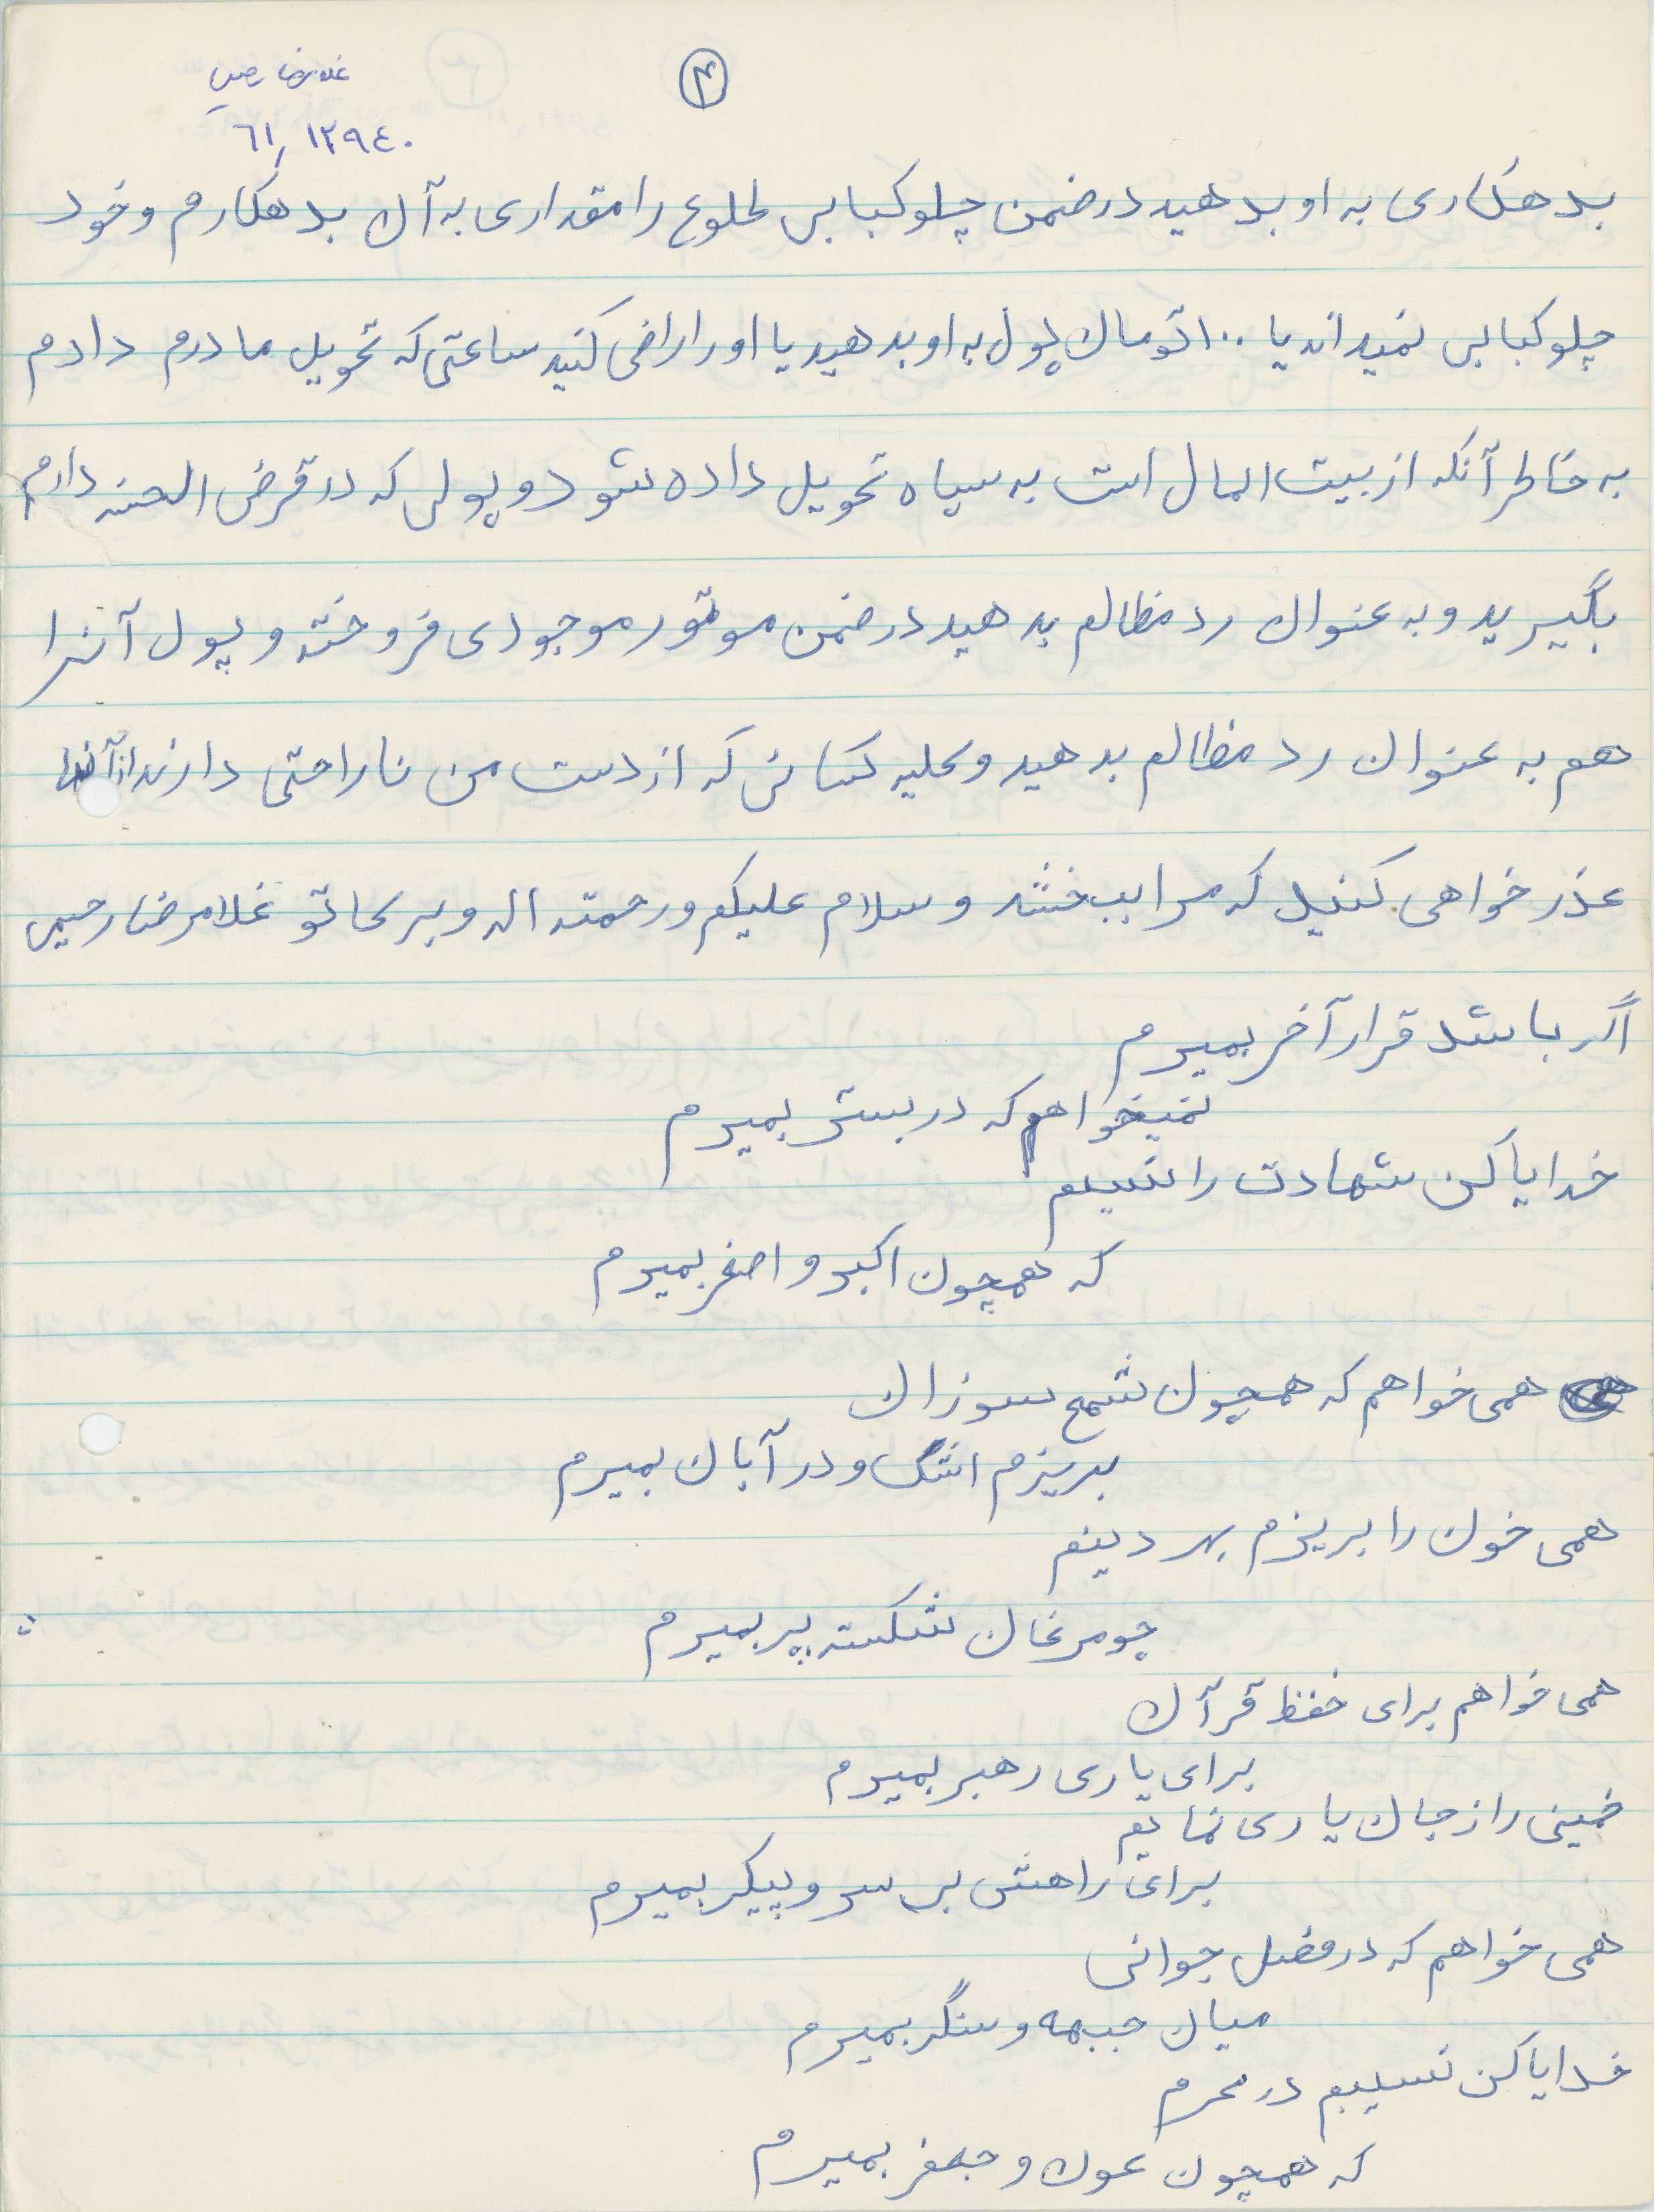 ۴
غلامرضا رحیمی
٦١/١٢٩٤٠
بدهکاری به او بدهید در ضمن چلوکبابی طلوع را مقداری به آن بدهکارم و خود
چلوکبابی نمیداند یا ۱۰۰ تومان پول به او بدهید یا او را راضی کنید ساعتی که تحویل مادرم دادم
به خاطر آنکه از بیت المال است به سپاه تحویل داده شود و پولی که در قرض الحسنه دارم
بگیرید و به عنوان رد مظالم بدهید در ضمن موتور موجودی فروخته و پول آنرا
هم به عنوان رد مظالم بدهید و کلیه کسانی که از دست من ناراحتی دارند از آنها
عذر خواهی کنید که مرا ببخشند و سلام علیکم و رحمته اله و برکاتو غلامرضا رحیمی
اگر باشد قرار آخر بمیرم
نمیخواهم که در بستر بمیرم
خدایا کن شهادت را نسیبم
که همچون اکبر و اصغر بمیرم
همی خواهم که همچون شمع سوزان
بریزم اشک و در آبان بمیرم
همی خون را بریزم بهر دینم
چو مرغان شکسته پر بمیرم
همی خواهم برای حفظ قرآن
برای یاری رهبر بمیرم
خمینی را ز جان یاری نمایم
برای راهش بی سر و پیکر بمیرم
همی خواهم که در فصل جوانی
میان جبهه و سنگر بمیرم
خدایا کن نسیبم در محرم
که همچون عون و جعفر بمیرم